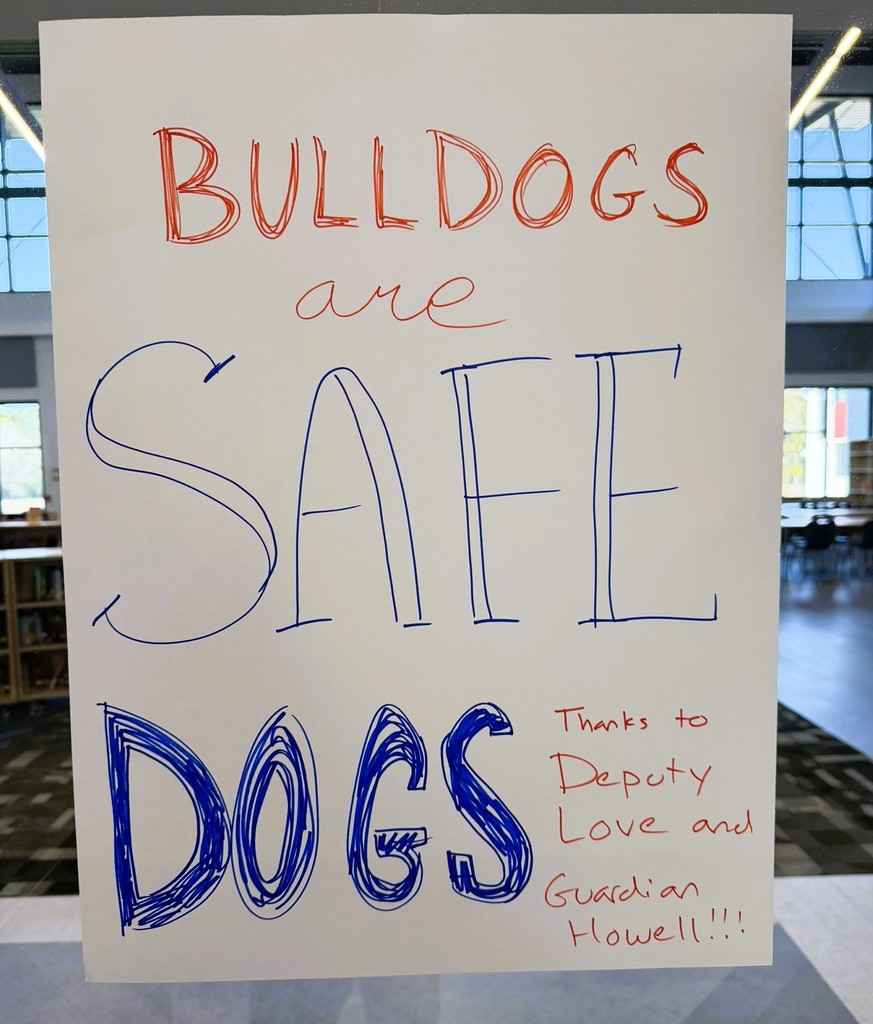 BULLDOGS
are
SAFE
DOGS
Thanks to
Deputy
Love and
Guardian
Howell!!!